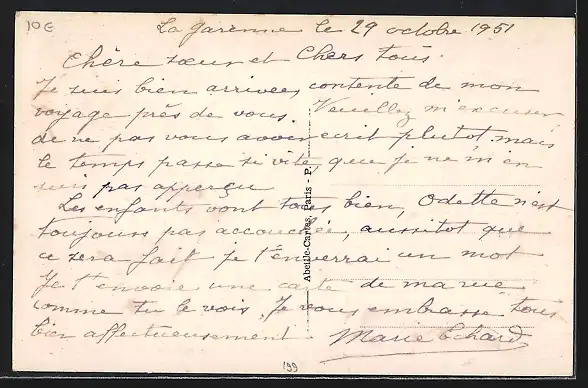 10€
La Garenne le 29 octobre 1951
Chère sœur et Chers tous.
Je suis bien arrivée, contente de mon
voyage près de vous. Veuillez m'excuser
de ne pas vous avoir ecrit plutot, mais
le temps passe si vite que je ne m'en
suis pas apperçu
Les enfants vont tous bien, Odette n'est
toujours pas accouchée, aussitot que
ce sera fait je t'enverrai un mot
Je t'envoie une carte de ma rue
comme tu le vois. Je vous embrasse tous
bien affectueusement Marie Echard
Abeille-Cartes, Paris - P.
199